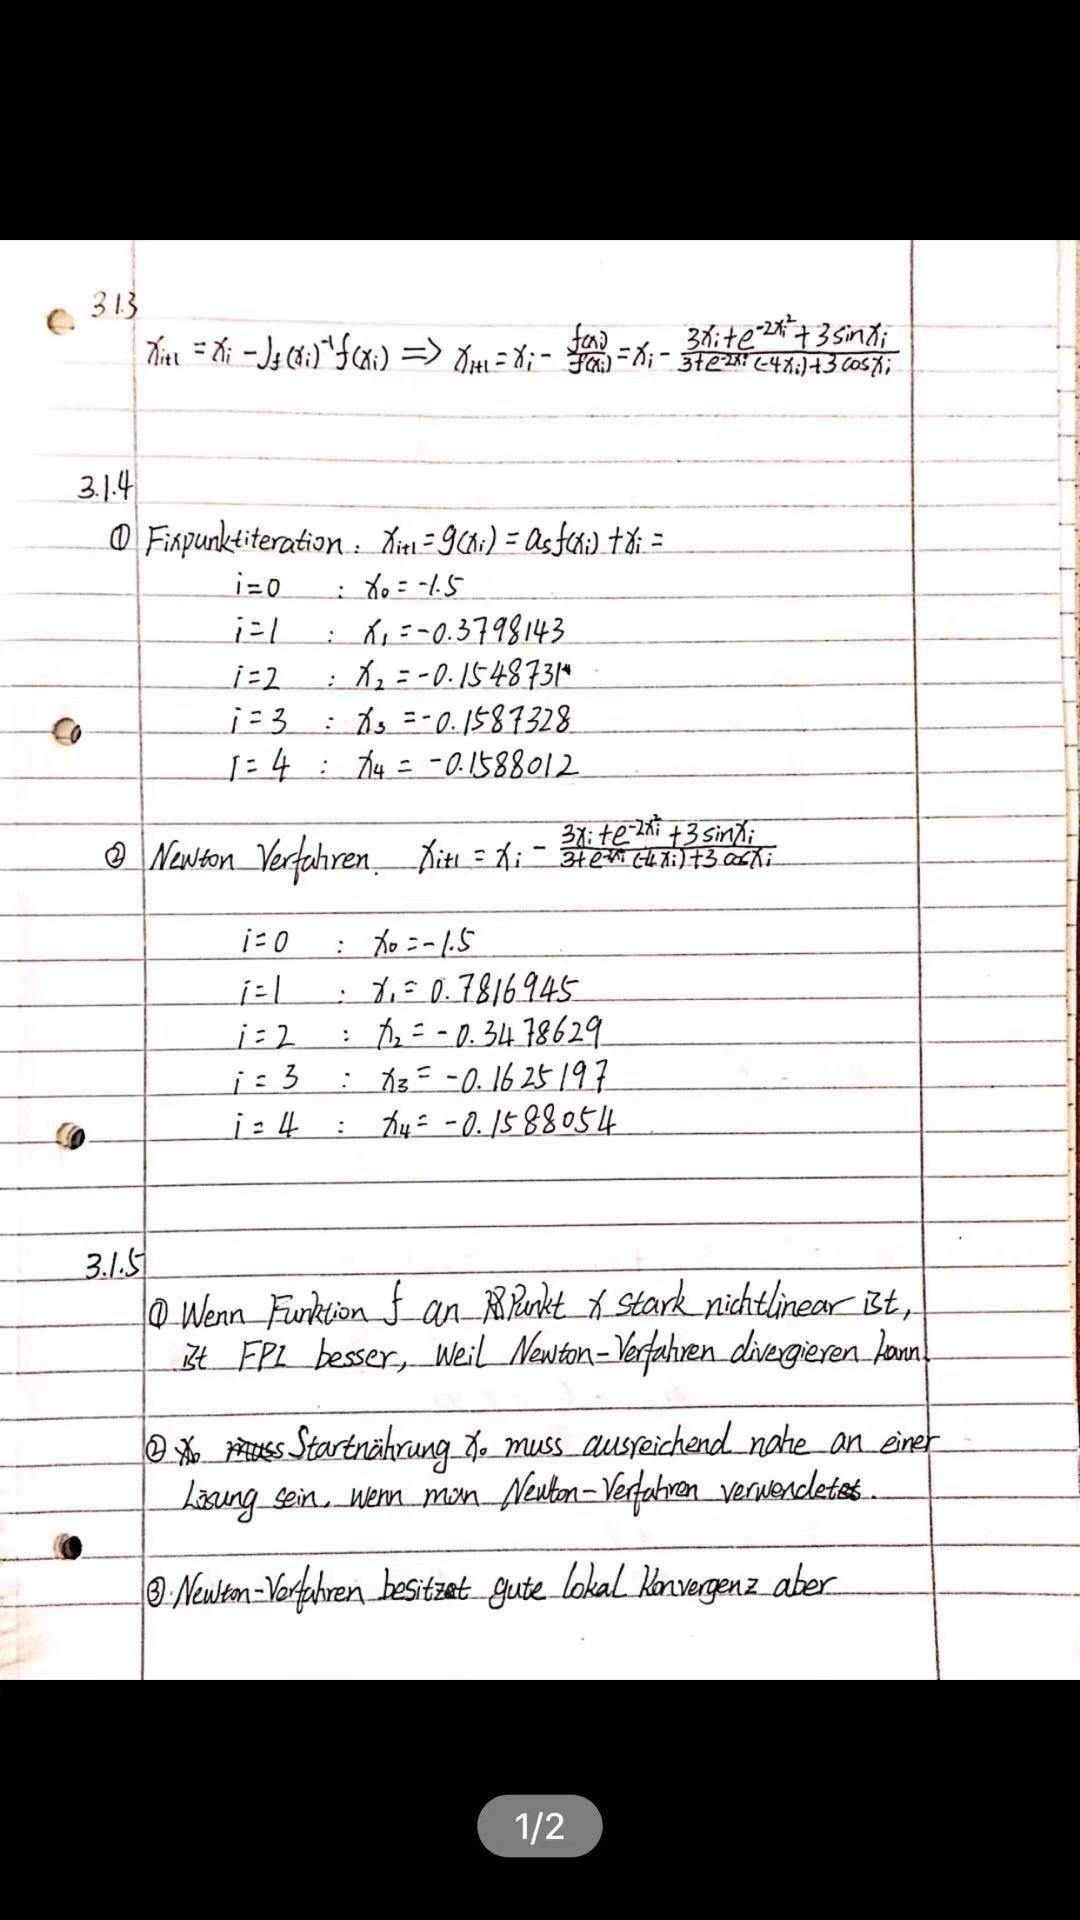 3.1.3
x_{i+1} = x_i - J_f(x_i)^{-1} f(x_i) ⇒ x_{i+1} = x_i - f(x_i)/f'(x_i) = x_i - (3x_i + e^{-2x_i^2} + 3 sin x_i)/(3 + e^{-2x_i^2}(-4x_i) + 3 cos x_i)
3.1.4
① Fixpunktiteration: x_{i+1} = g(x_i) = a_s f(x_i) + x_i =
i=0 : x_0 = -1.5
i=1 : x_1 = -0.3798143
i=2 : x_2 = -0.1548731
i=3 : x_3 = -0.1587328
i=4 : x_4 = -0.1588012
② Newton Verfahren. x_{i+1} = x_i - (3x_i + e^{-2x_i^2} + 3 sin x_i)/(3 + e^{-2x_i^2}(-4x_i) + 3 cos x_i)
i=0 : x_0 = -1.5
i=1 : x_1 = 0.7816945
i=2 : x_2 = -0.3478629
i=3 : x_3 = -0.1625197
i=4 : x_4 = -0.1588054
3.1.5
① Wenn Funktion f an Punkt x stark nichtlinear ist,
ist FPI besser, weil Newton-Verfahren divergieren kann.
② Startnährung x_0 muss ausreichend nahe an einer
Lösung sein, wenn man Newton-Verfahren verwendet.
③ Newton-Verfahren besitzt gute lokal Konvergenz aber
1/2